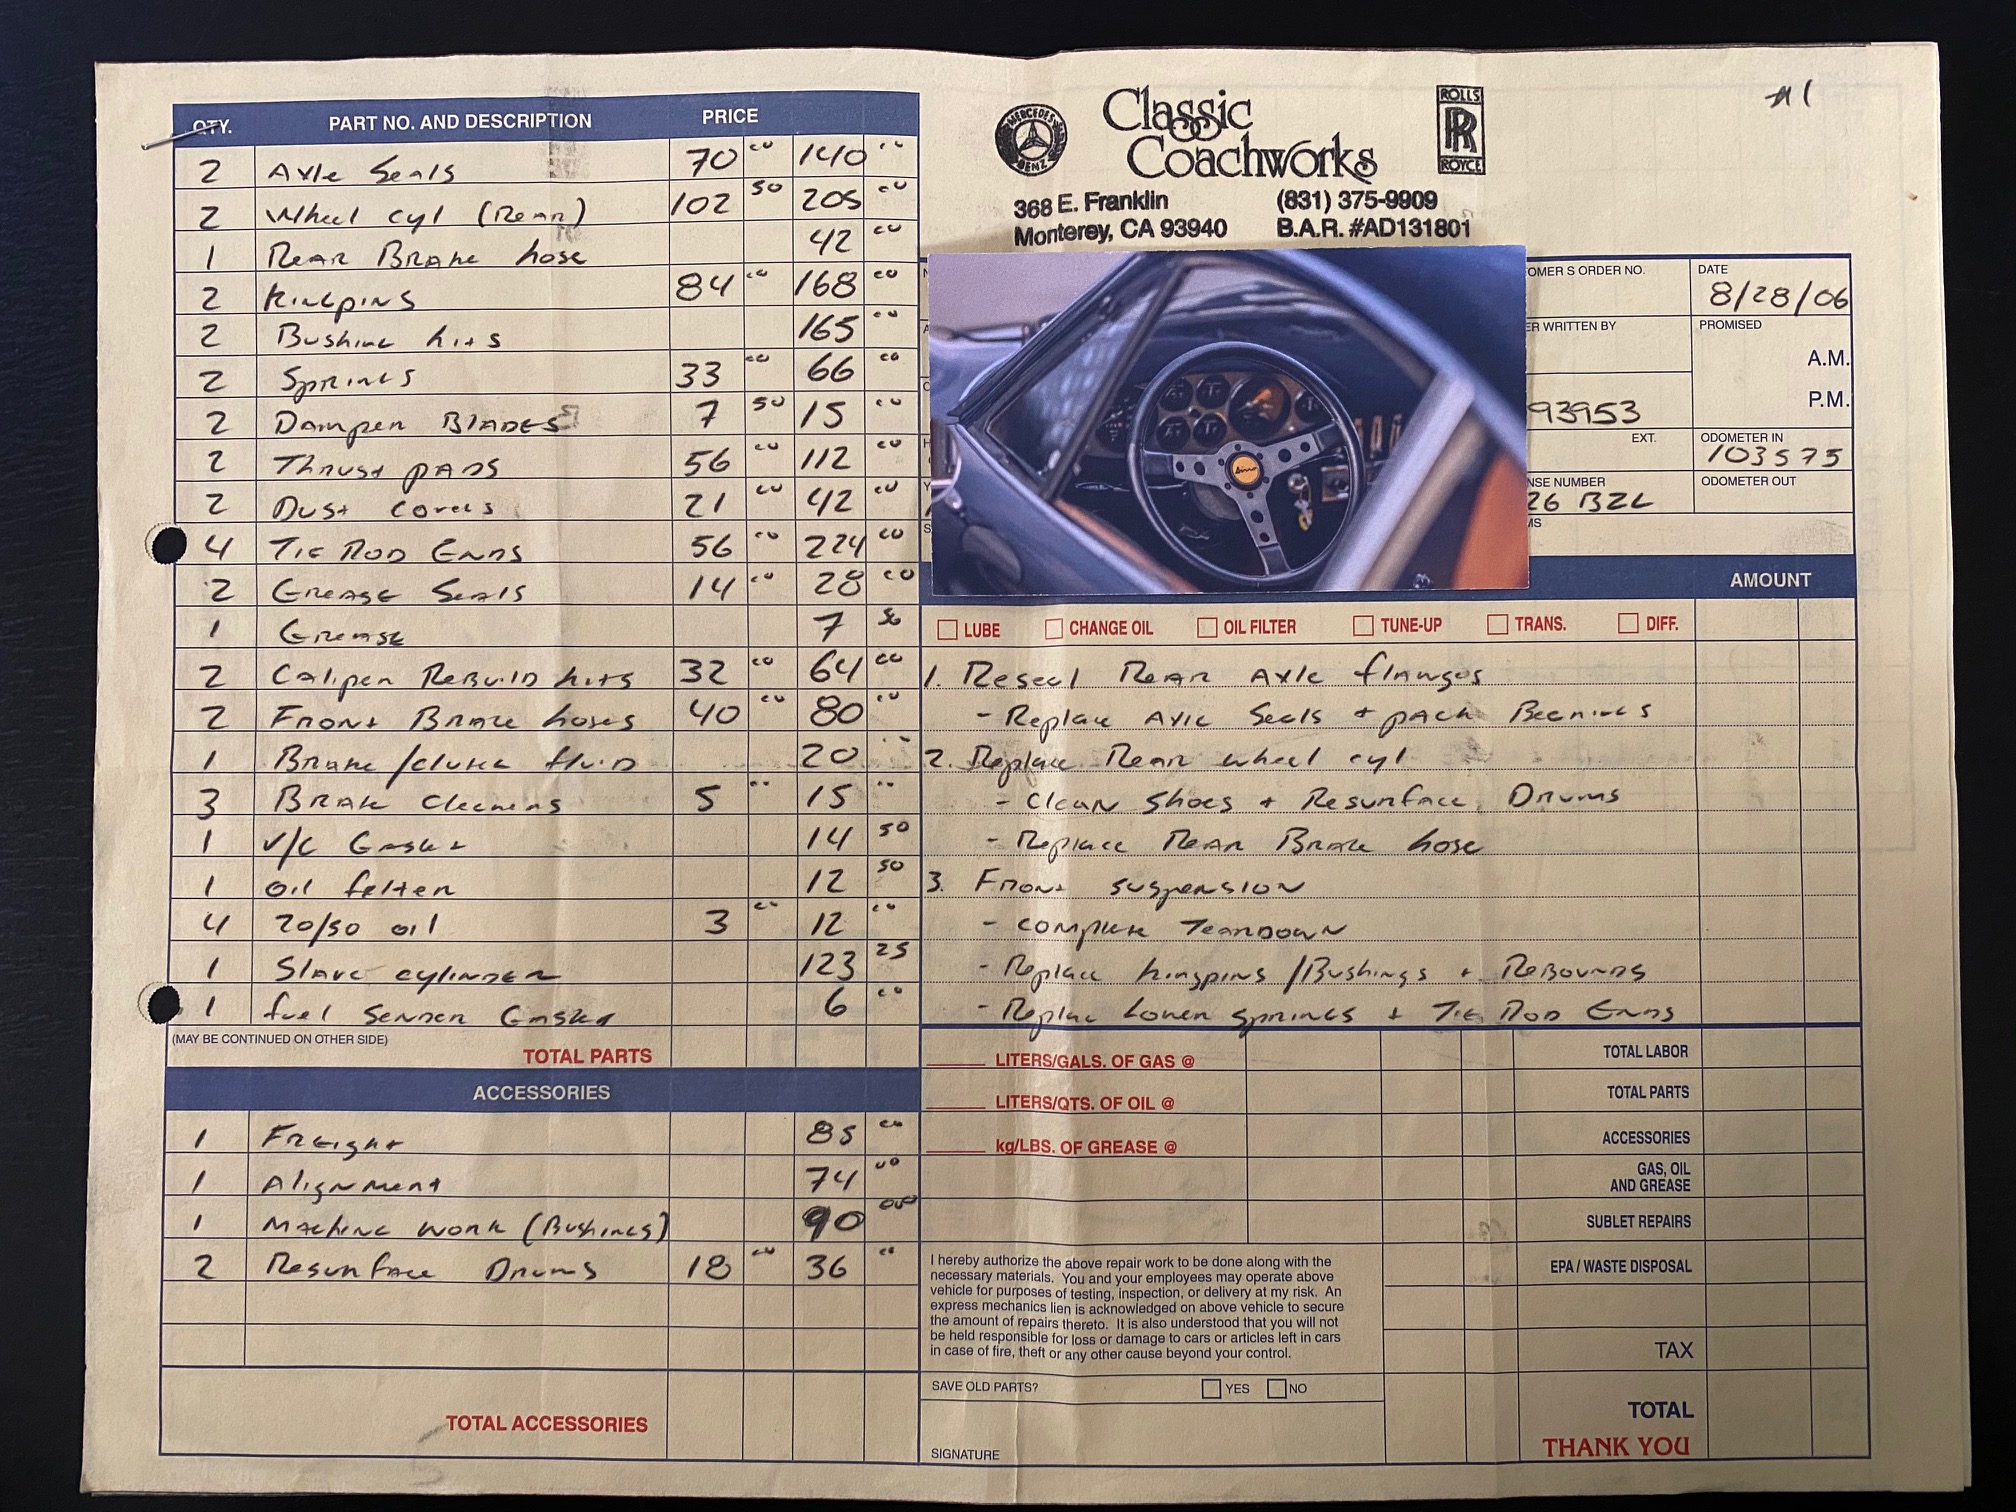 #1
MERCEDES BENZ
Classic
Coachworks
ROLLS
RR
ROYCE
368 E. Franklin (831) 375-9909
Monterey, CA 93940 B.A.R. #AD131801
QTY. PART NO. AND DESCRIPTION PRICE
2 Axle Seals 70 00 140 00
2 Wheel cyl (Rear) 102 50 205 00
1 Rear Brake hose 42 00
2 Kingpins 84 00 168 00
2 Bushing kits 165 00
2 Springs 33 00 66 00
2 Dampen Blades 7 50 15 00
2 Thrust pads 56 00 112 00
2 Dust covers 21 00 42 00
4 Tie Rod Ends 56 00 224 00
2 Grease Seals 14 00 28 00
1 Grease 7 50
2 Caliper Rebuild kits 32 00 64 00
2 Front Brake hoses 40 00 80 00
1 Brake/clutch fluid 20 00
3 Brake Cleaners 5 00 15 00
1 v/c Gasket 14 50
1 oil felter 12 50
4 20/50 oil 3 00 12 00
1 Slave cylinder 123 25
1 fuel sender Gasket 6 00
(MAY BE CONTINUED ON OTHER SIDE)
TOTAL PARTS
ACCESSORIES
1 Freight 85 00
1 Alignment 74 00
1 Machine work (Bushings) 90 00
2 Resurface Drums 18 00 36 00
TOTAL ACCESSORIES
OMER'S ORDER NO.
DATE
8/28/06
ER WRITTEN BY
PROMISED
A.M.
P.M.
93953
EXT.
ODOMETER IN
103575
NSE NUMBER
26 BZL
ODOMETER OUT
MS
Dino
AMOUNT
LUBE CHANGE OIL OIL FILTER TUNE-UP TRANS. DIFF.
1. Reseal Rear Axle flanges
- Replace Axle Seals + pack Bearings
2. Replace Rear wheel cyl
- Clean Shoes + Resurface Drums
- Replace Rear Brake hose
3. Front suspension
- complete Teardown
- Replace kingpins/Bushings + Rebounds
- Replac Lower springs + Tie Rod Ends
LITERS/GALS. OF GAS @
LITERS/QTS. OF OIL @
kg/LBS. OF GREASE @
TOTAL LABOR
TOTAL PARTS
ACCESSORIES
GAS, OIL
AND GREASE
SUBLET REPAIRS
EPA / WASTE DISPOSAL
TAX
TOTAL
THANK YOU
I hereby authorize the above repair work to be done along with the
necessary materials. You and your employees may operate above
vehicle for purposes of testing, inspection, or delivery at my risk. An
express mechanics lien is acknowledged on above vehicle to secure
the amount of repairs thereto. It is also understood that you will not
be held responsible for loss or damage to cars or articles left in cars
in case of fire, theft or any other cause beyond your control.
SAVE OLD PARTS? YES NO
SIGNATURE